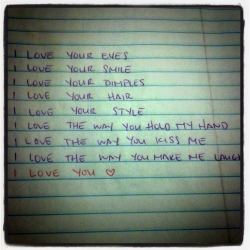 I LOVE YOUR EYES
I LOVE YOUR SMILE
I LOVE YOUR DIMPLES
I LOVE YOUR HAIR
I LOVE YOUR STYLE
I LOVE THE WAY YOU HOLD MY HAND
I LOVE THE WAY YOU KISS ME
I LOVE THE WAY YOU MAKE ME LAUGH
I LOVE YOU ♡